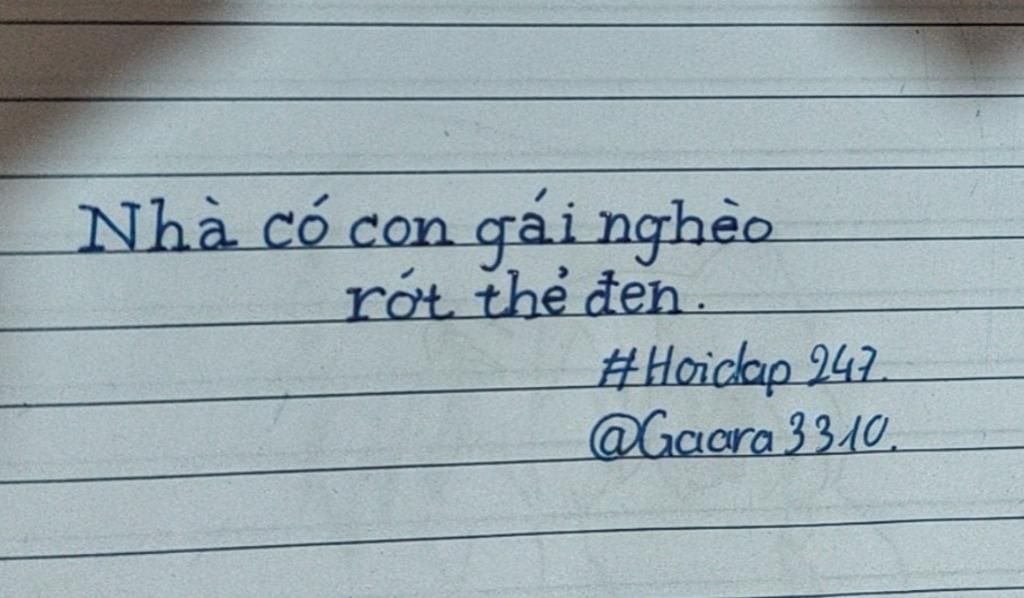 Nhà có con gái nghèo
rớt thẻ đen.
#Hoidap 247.
@Gaara 3310.